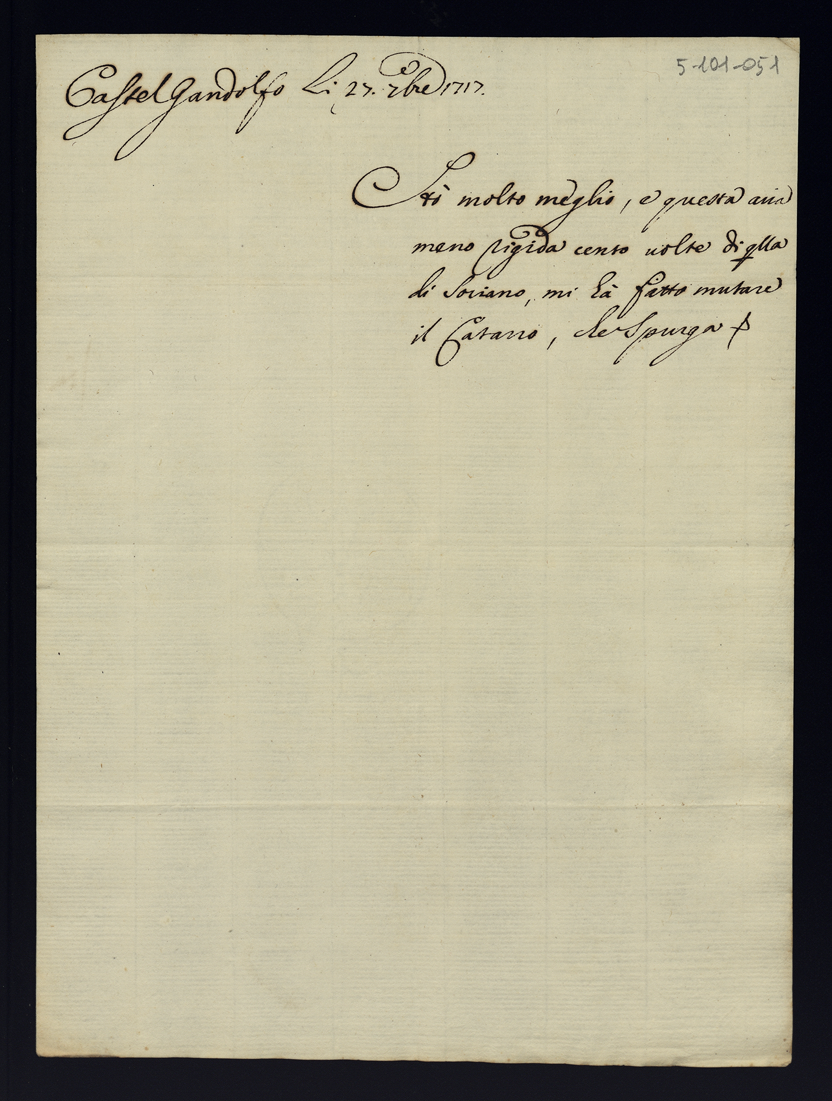 5-101-051
Castel Gandolfo Li 27. 7bre 1717.
Stò molto meglio, e questa aria
meno rigida cento uolte di qlla
di Soriano, mi hà fatto mutare
il Catarro, che Spurga